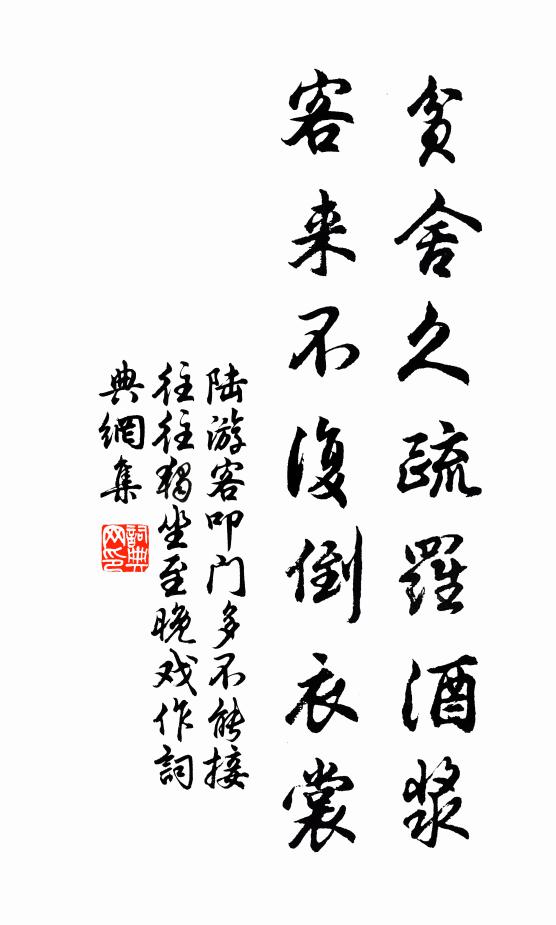 貧舍久疏羅酒漿
客来不復倒衣裳
陆游客叩门多不能接
往往獨坐至晚戏作詞
典網集
詞典
网印